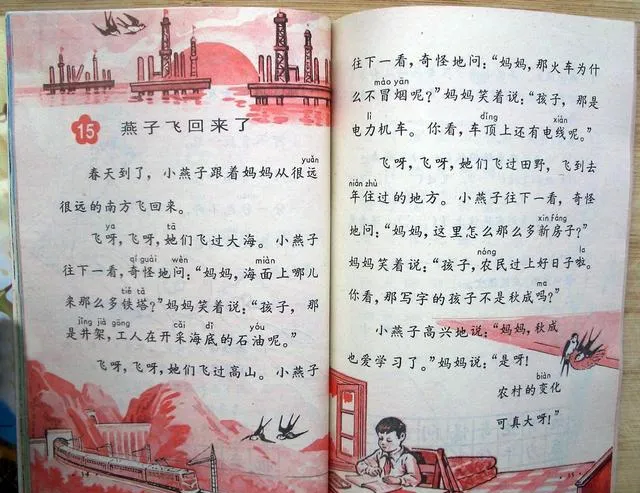 15 燕子飞回来了
yuǎn
春天到了，小燕子跟着妈妈从很远
很远的南方飞回来。
ya tā
飞呀，飞呀，她们飞过大海。小燕子
qí guài wèn miàn
往下一看，奇怪地问：“妈妈，海面上哪儿
tiě tǎ
来那么多铁塔？”妈妈笑着说：“孩子，那
jǐng jià gōng cǎi dǐ yóu
是井架，工人在开采海底的石油呢。”
飞呀，飞呀，她们飞过高山。小燕子
54
往下一看，奇怪地问：“妈妈，那火车为什
mào yān
么不冒烟呢？”妈妈笑着说：“孩子，那是
lì dǐng xiàn
电力机车。你看，车顶上还有电线呢。”
飞呀，飞呀，她们飞过田野，飞到去
nián zhù
年住过的地方。小燕子往下一看，奇怪
xīn fáng
地问：“妈妈，这里怎么那么多新房子？”
nóng la
妈妈笑着说：“孩子，农民过上好日子啦。
ma
你看，那写字的孩子不是秋成吗？”
小燕子高兴地说：“妈妈，秋成
也爱学习了。”妈妈说：“是呀！
biàn
农村的变化
可真大呀！”
55